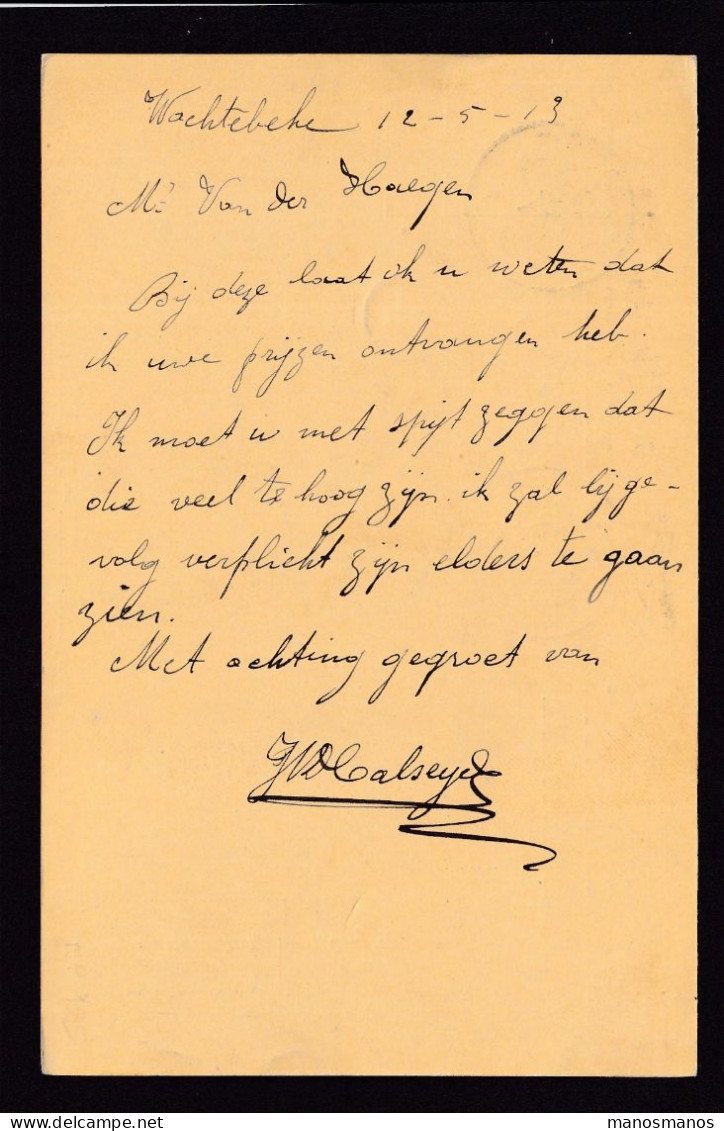 Wachtebeke 12-5-13
Mr Van der Haegen
Bij deze laat ik u weten dat
ik uwe prijzen ontvangen heb.
Ik moet u met spijt zeggen dat
die veel te hoog zijn. ik zal bijge-
volg verplicht zijn elders te gaan
zien.
Met achting gegroet van
manosmanos